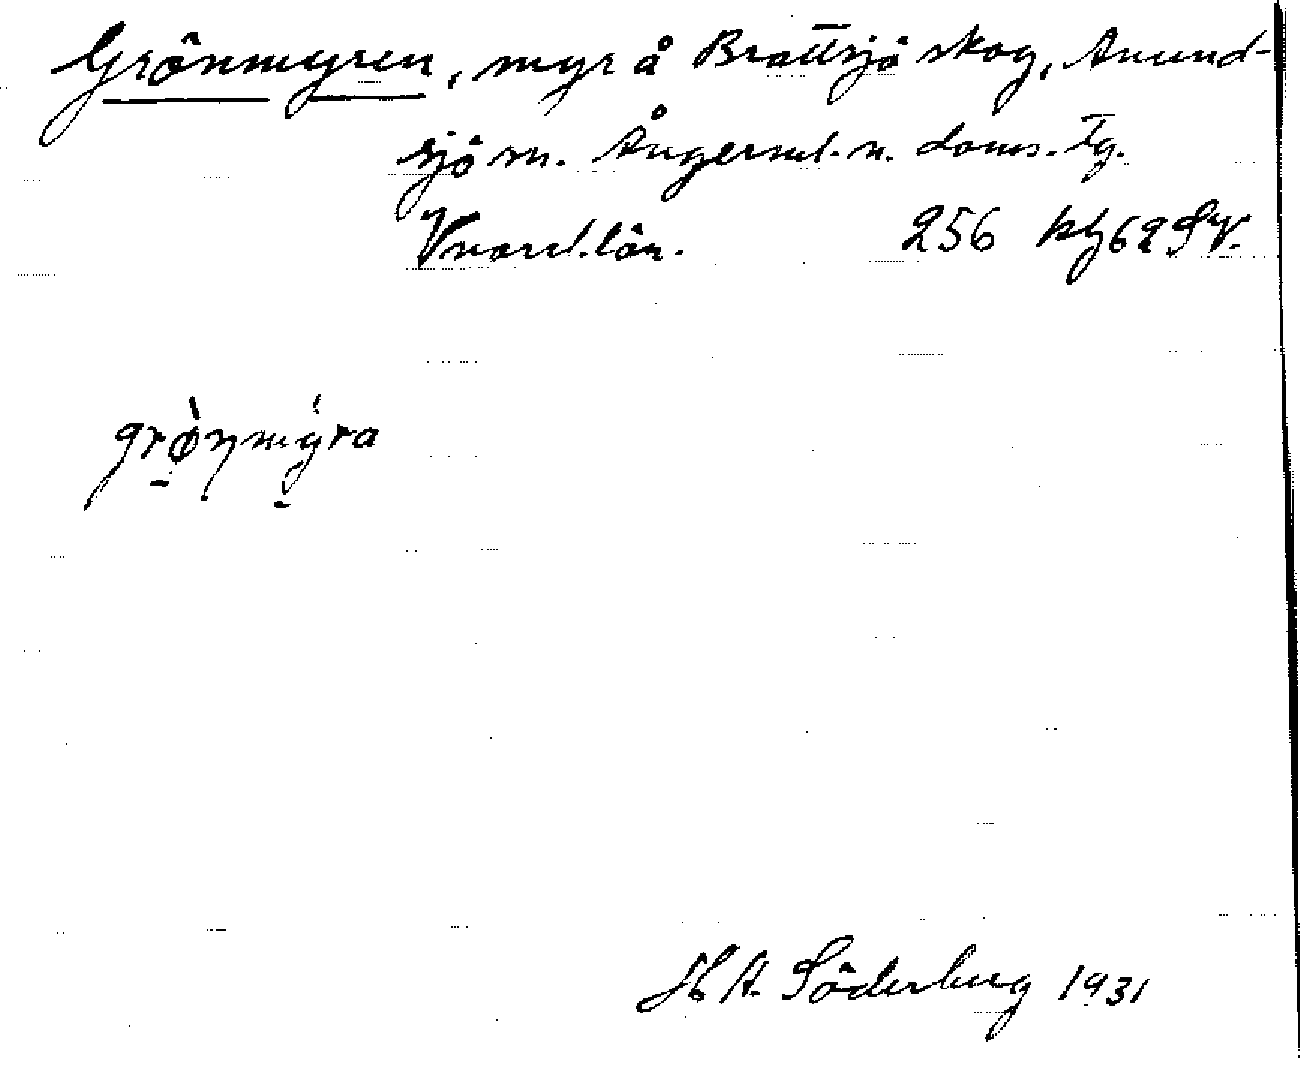 Grönmyren, myr å Brattsjö skog, Anund-
sjö sn. Ångerml. n. doms. tg.
Vnorrl. län. 256 62 SV.
grø̀nmýra
H A. Söderberg 1931